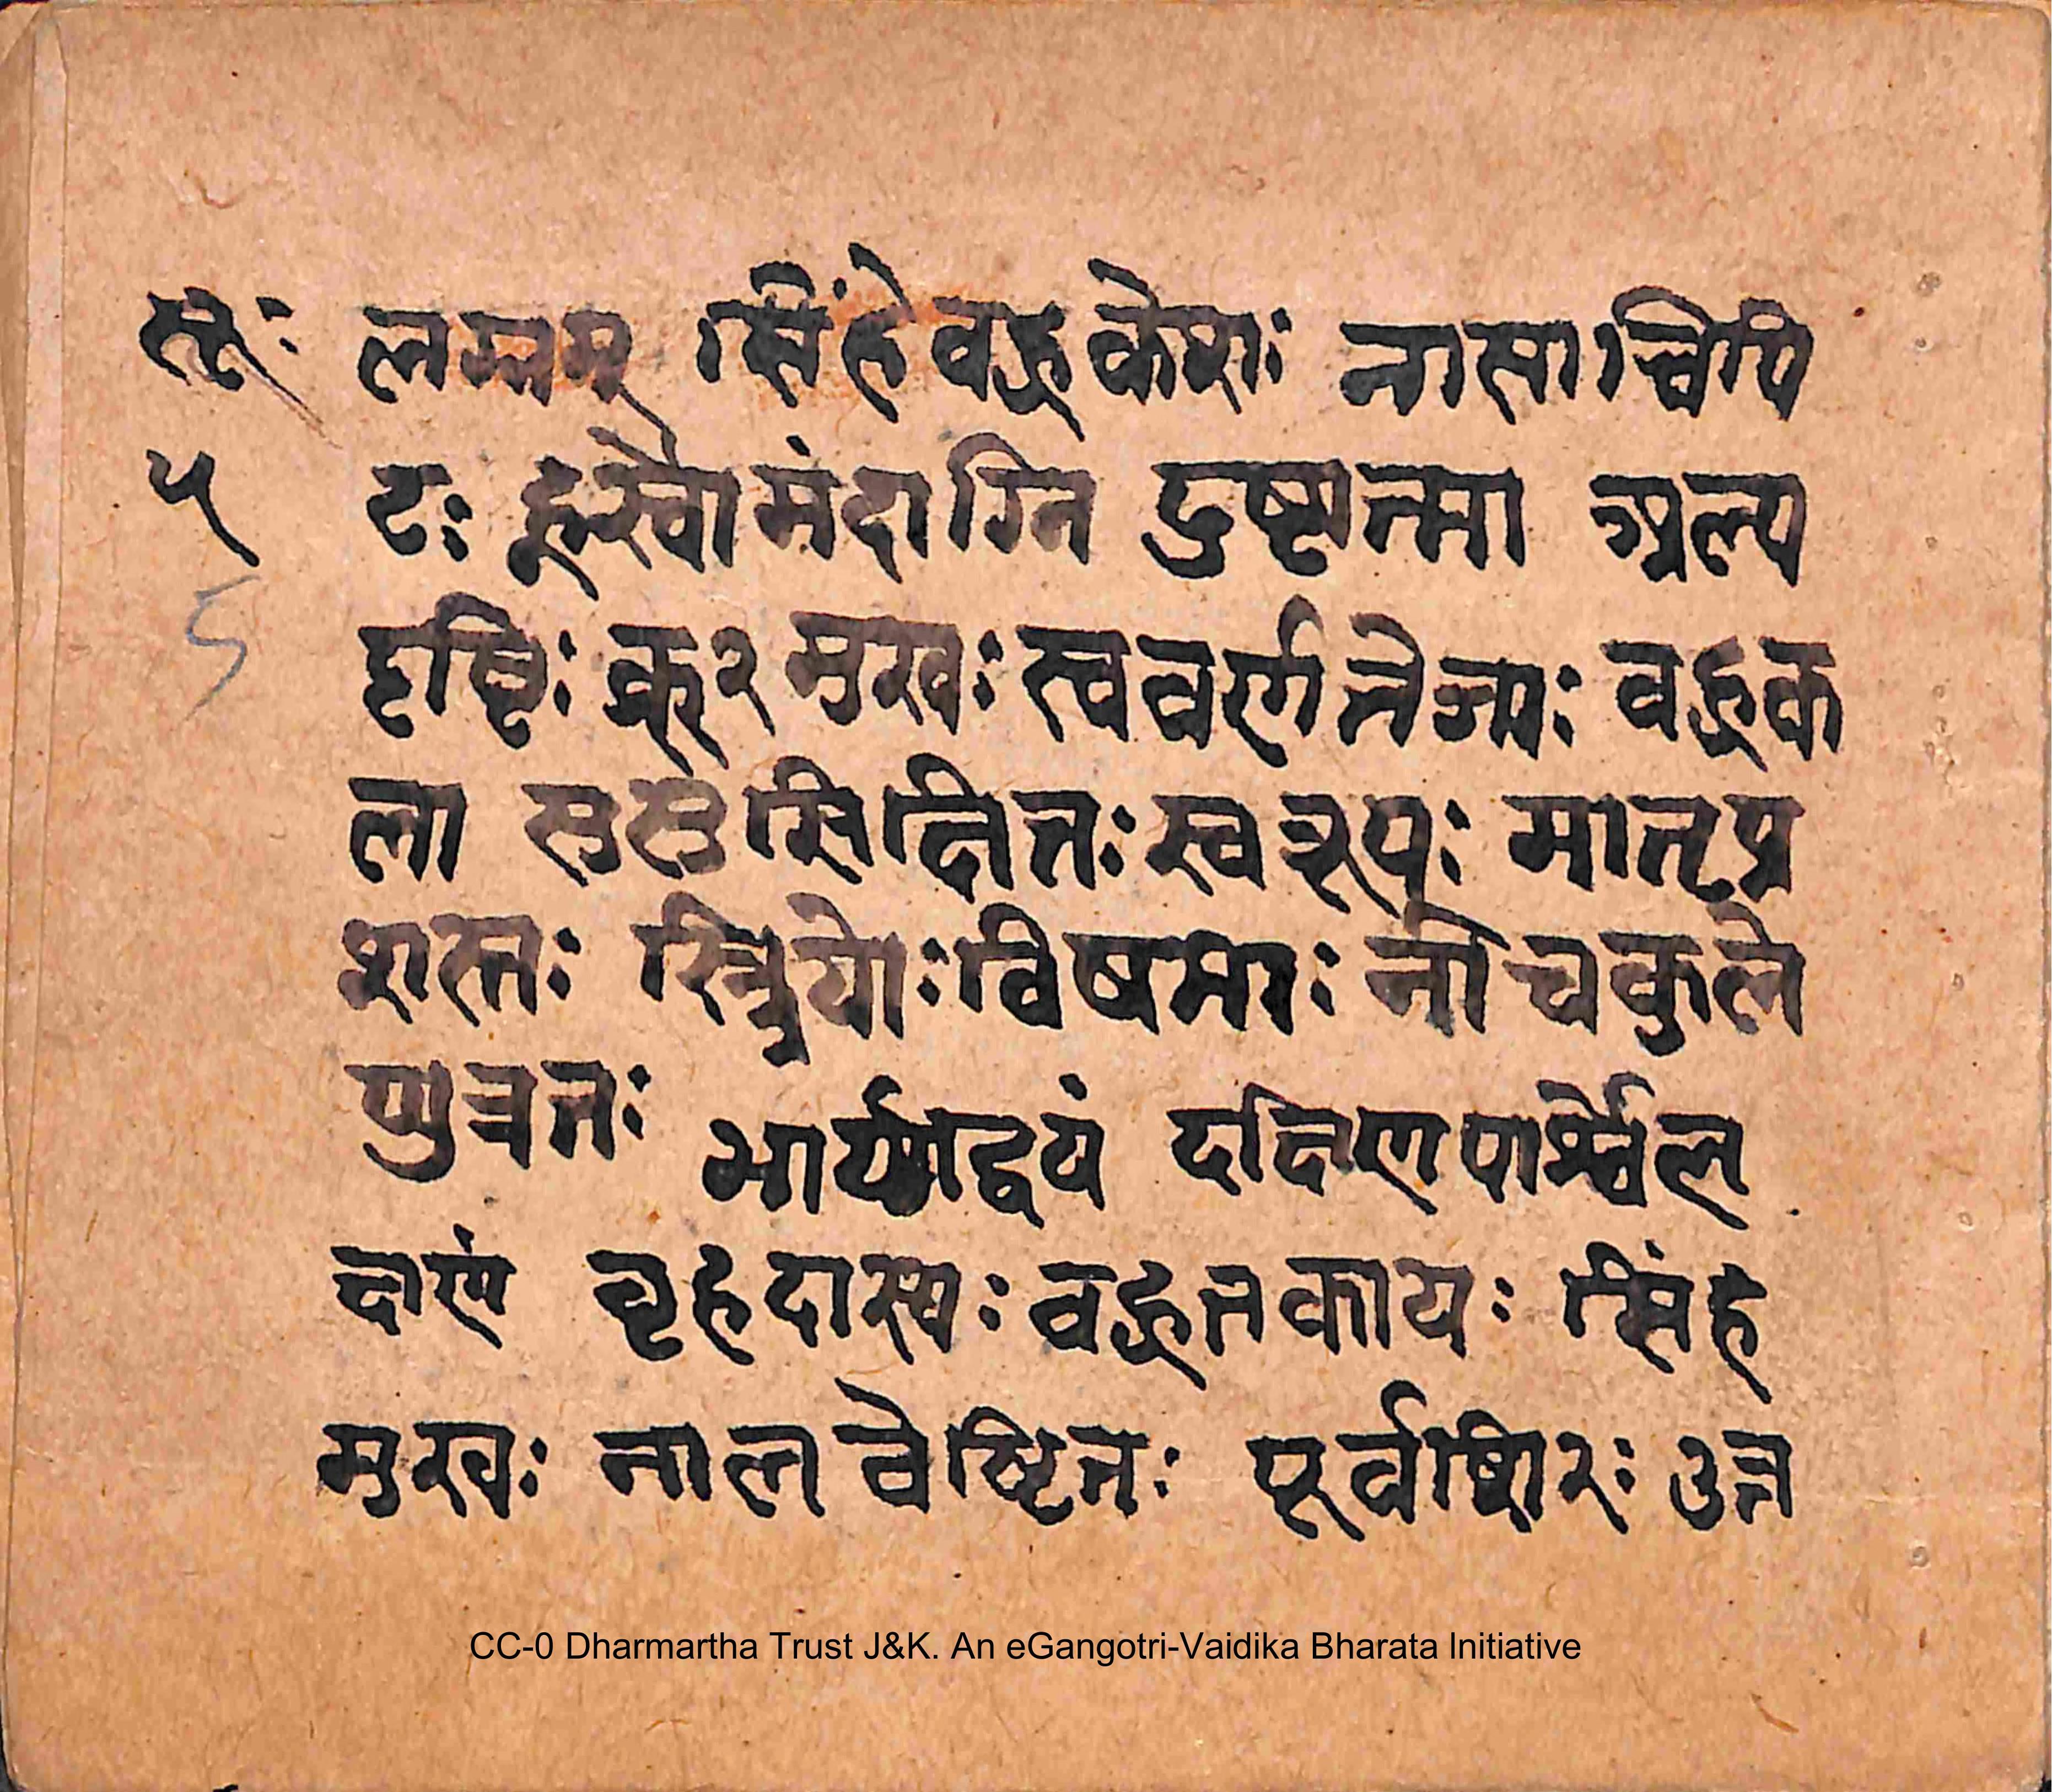 स्त्रः लग्नम् सिंहे वहुकेशः नासाच्चिपि
५ टः हूस्वो मंदाग्नि दुष्टात्मा अल्प
5 दृष्टिः क्रूर मुखः स्ववर्ण तेजाः वहुक
ला सुसुसिक्षितः स्वरूपः मातृप्र
शस्तः स्त्रियोः विषमाः नीचकुले
पुत्रतः भार्याद्वयं दक्षिणपार्श्वेल
क्षणं वृहदास्यः वहुतकायः सिंह
मुखः नाल वेष्टितः पूर्वशिरः उत्त
CC-0 Dharmartha Trust J&K. An eGangotri-Vaidika Bharata Initiative